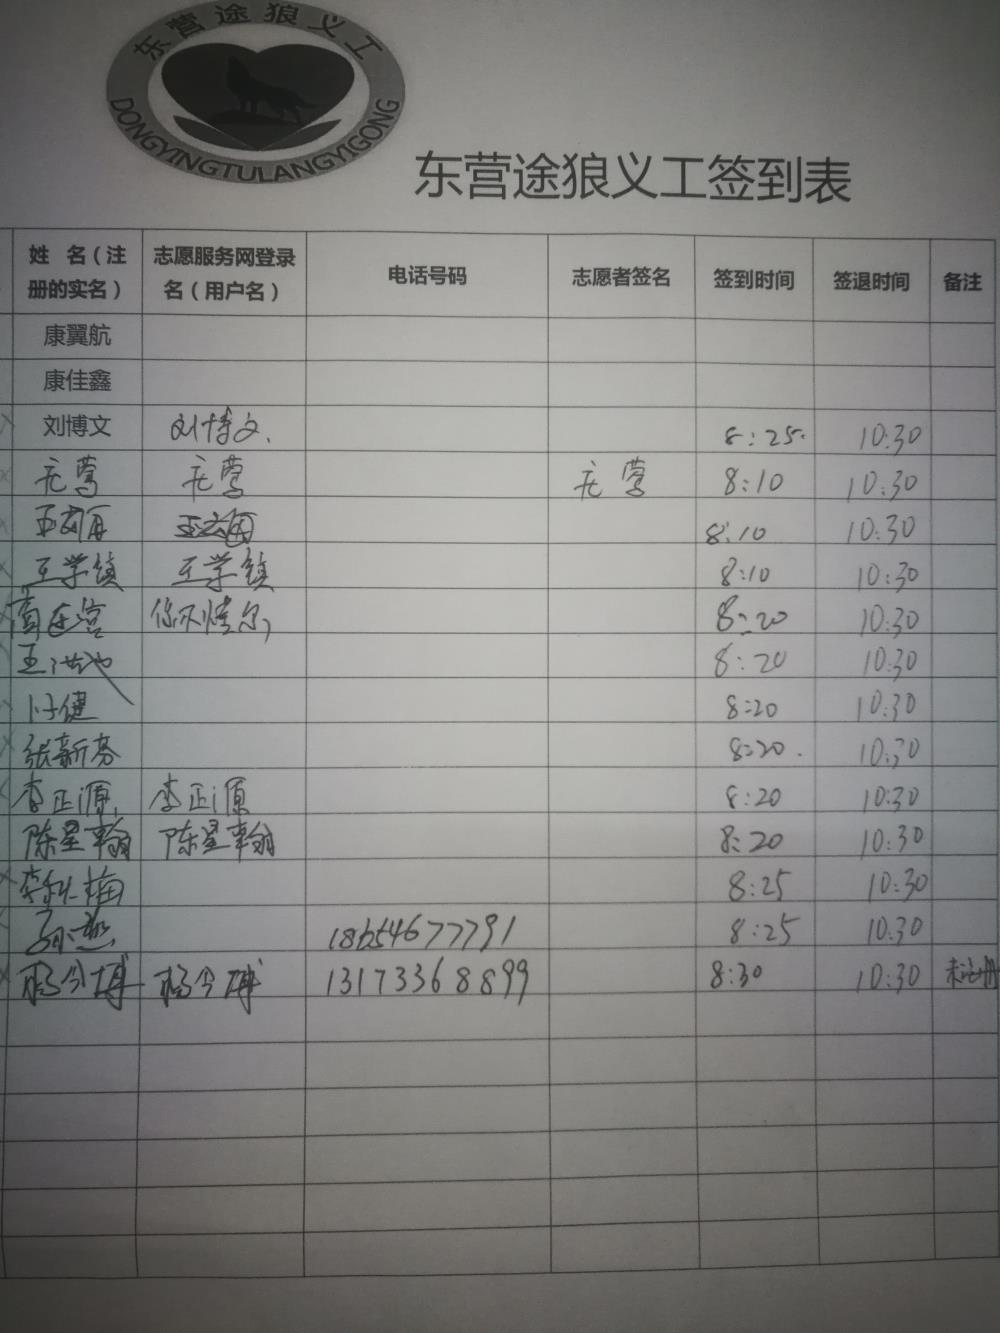 东营途狼义工
DONGYINGTULANGYIGONG
东营途狼义工签到表
姓 名（注册的实名） 志愿服务网登录名（用户名） 电话号码 志愿者签名 签到时间 签退时间 备注
康翼航
康佳鑫
刘博文 刘博文. 8:25. 10:30
莺 莺 莺 8:10 10:30
王 8:10 10:30
王学镇 王学镇 8:10 10:30
8:20 10:30
王洪池 8:20 10:30
健 8:20 10:30
张新芬 8:20. 10:30
李正源 李正源 8:20 10:30
陈星翰 陈星翰 8:20 10:30
梅 8:25 10:30
孙燕 18654677791 8:25 10:30
杨今博 杨今博 13173368899 8:30 10:30 未注册